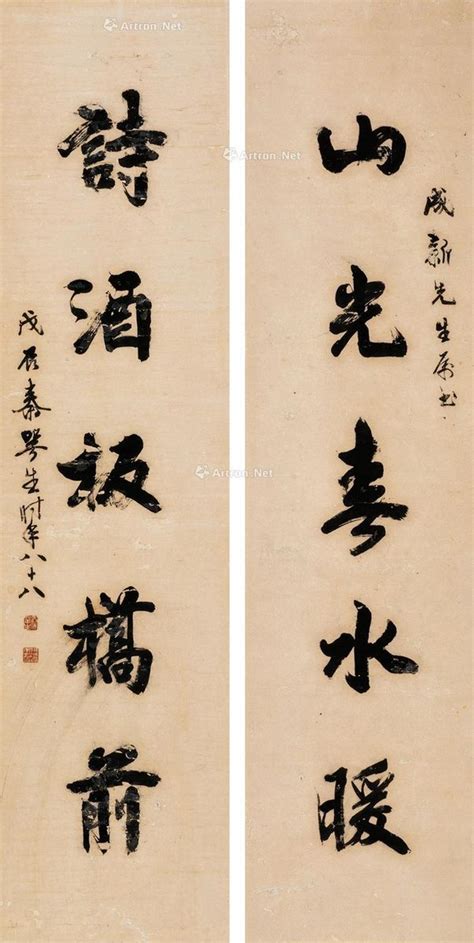 成新先生属书
山光春水暖
詩酒板橋前
戊辰秦咢生时年八十八
Artron.Net
Artron.Net
Artron.Net
Artron.Net